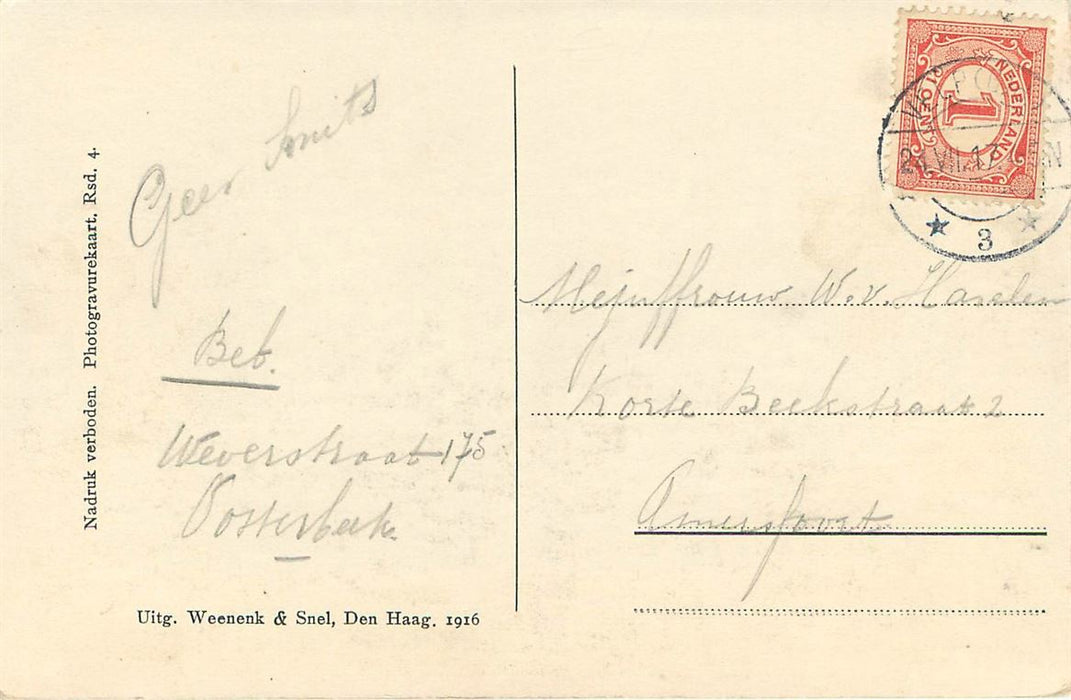 Nadruk verboden. Photogravurekaart. Rsd. 4.
Geer Smits
Beb.
Weverstraat 175
Oosterbeek
Uitg. Weenenk & Snel, Den Haag. 1916
NEDERLAND
1
1 CENT
VII.17
3
Mejuffrouw W. v. Haselen
Korte Beekstraat 2
Amersfoort